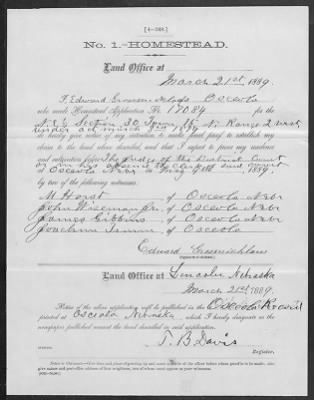 [4—348.]
No. 1.—HOMESTEAD.
Land Office at
March 21st, 1889.
I, Edward of Osceola
who made Homestead Application No. 17084 for the
N.E.¼ Section 30 Town 16 N. Range 2 West
under act March 3rd 1879
do hereby give notice of my intention to make final proof to establish my
claim to the land above described, and that I expect to prove my residence
and cultivation before The Judge of the District Court
or in his absence the Clerk of said Court
at Osceola Nebr on May 9th, 1889,
by two of the following witnesses:
M Horst of Osceola Nebr
John Wiseman Jr. of Osceola Nebr
James Gibbins of Osceola Nebr
Joachim of Osceola
Edward
Land Office at Lincoln Nebraska
March 21st 1889.
Notice of the above application will be published in the Osceola Record
printed at Osceola Nebraska which I hereby designate as the
newspaper published nearest the land described in said application.
T. B Davis
Register.